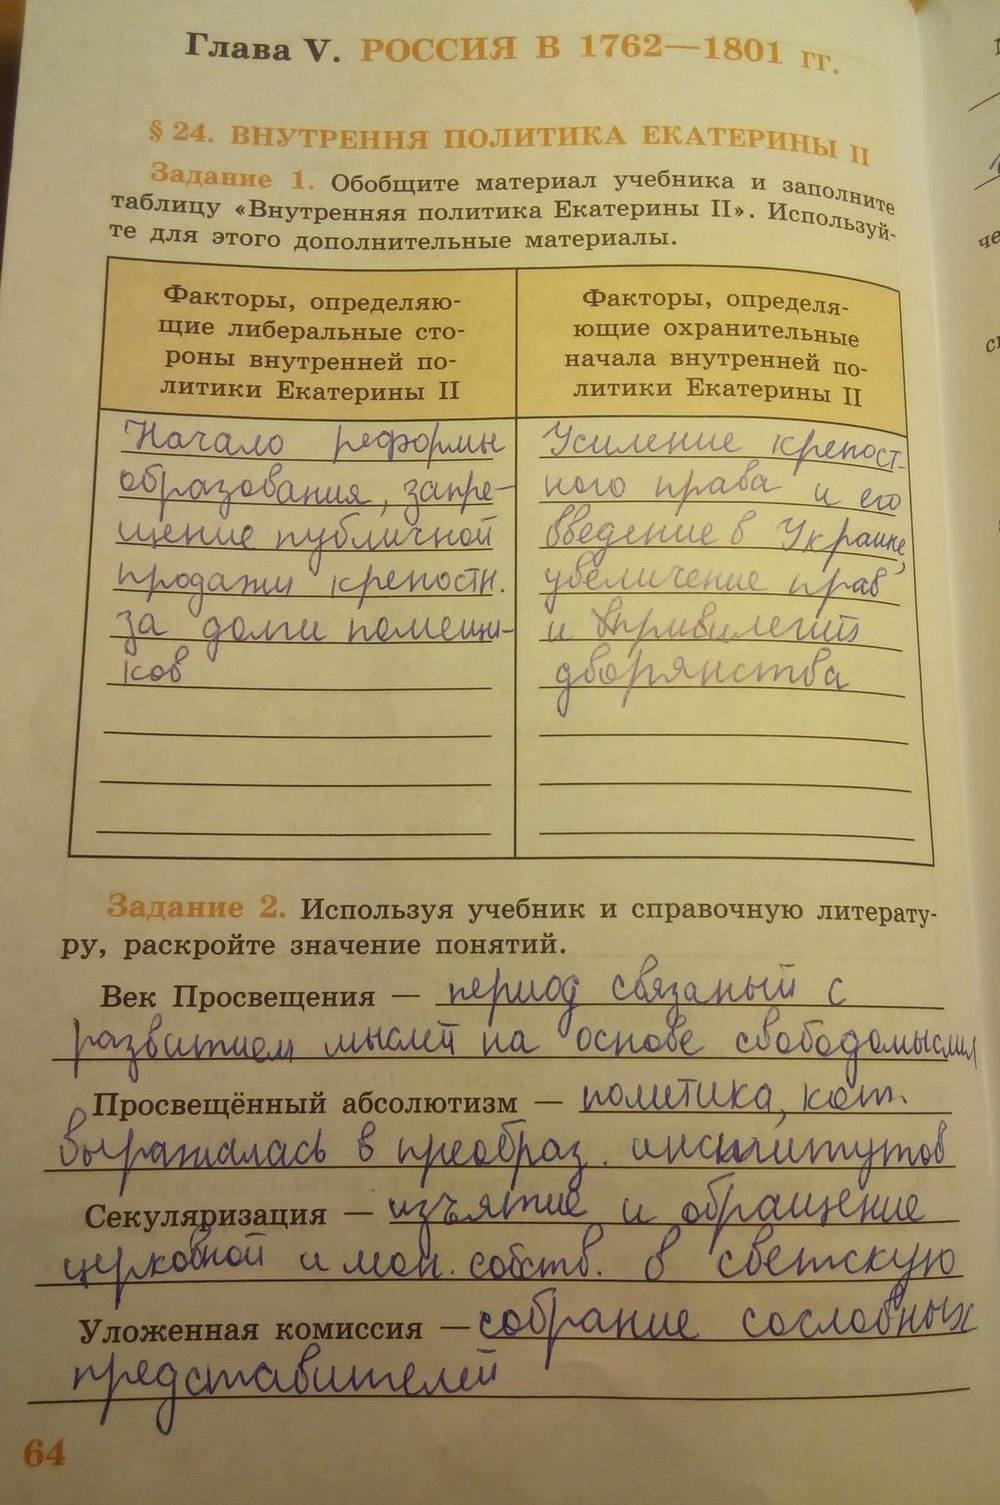 Глава V. РОССИЯ В 1762—1801 гг.
§ 24. ВНУТРЕННЯ ПОЛИТИКА ЕКАТЕРИНЫ II
Задание 1. Обобщите материал учебника и заполните
таблицу «Внутренняя политика Екатерины II». Используй-
те для этого дополнительные материалы.
Факторы, определяю-
щие либеральные сто-
роны внутренней по-
литики Екатерины II
Начало реформы
образования, запре-
щение публичной
продажи крепостн.
за долги помещи-
ков
Факторы, определя-
ющие охранительные
начала внутренней по-
литики Екатерины II
Усиление крепост-
ного права и его
введение в Украине,
увеличение прав
и привилегий
дворянства
Задание 2. Используя учебник и справочную литерату-
ру, раскройте значение понятий.
Век Просвещения — период связаный с
развитием мыслей на основе свободомыслия
Просвещённый абсолютизм — политика, кот.
выражалась в преобраз. институтов
Секуляризация — изъятие и обращение
церковной и мон. собств. в светскую
Уложенная комиссия — собрание сословных
представителей
64